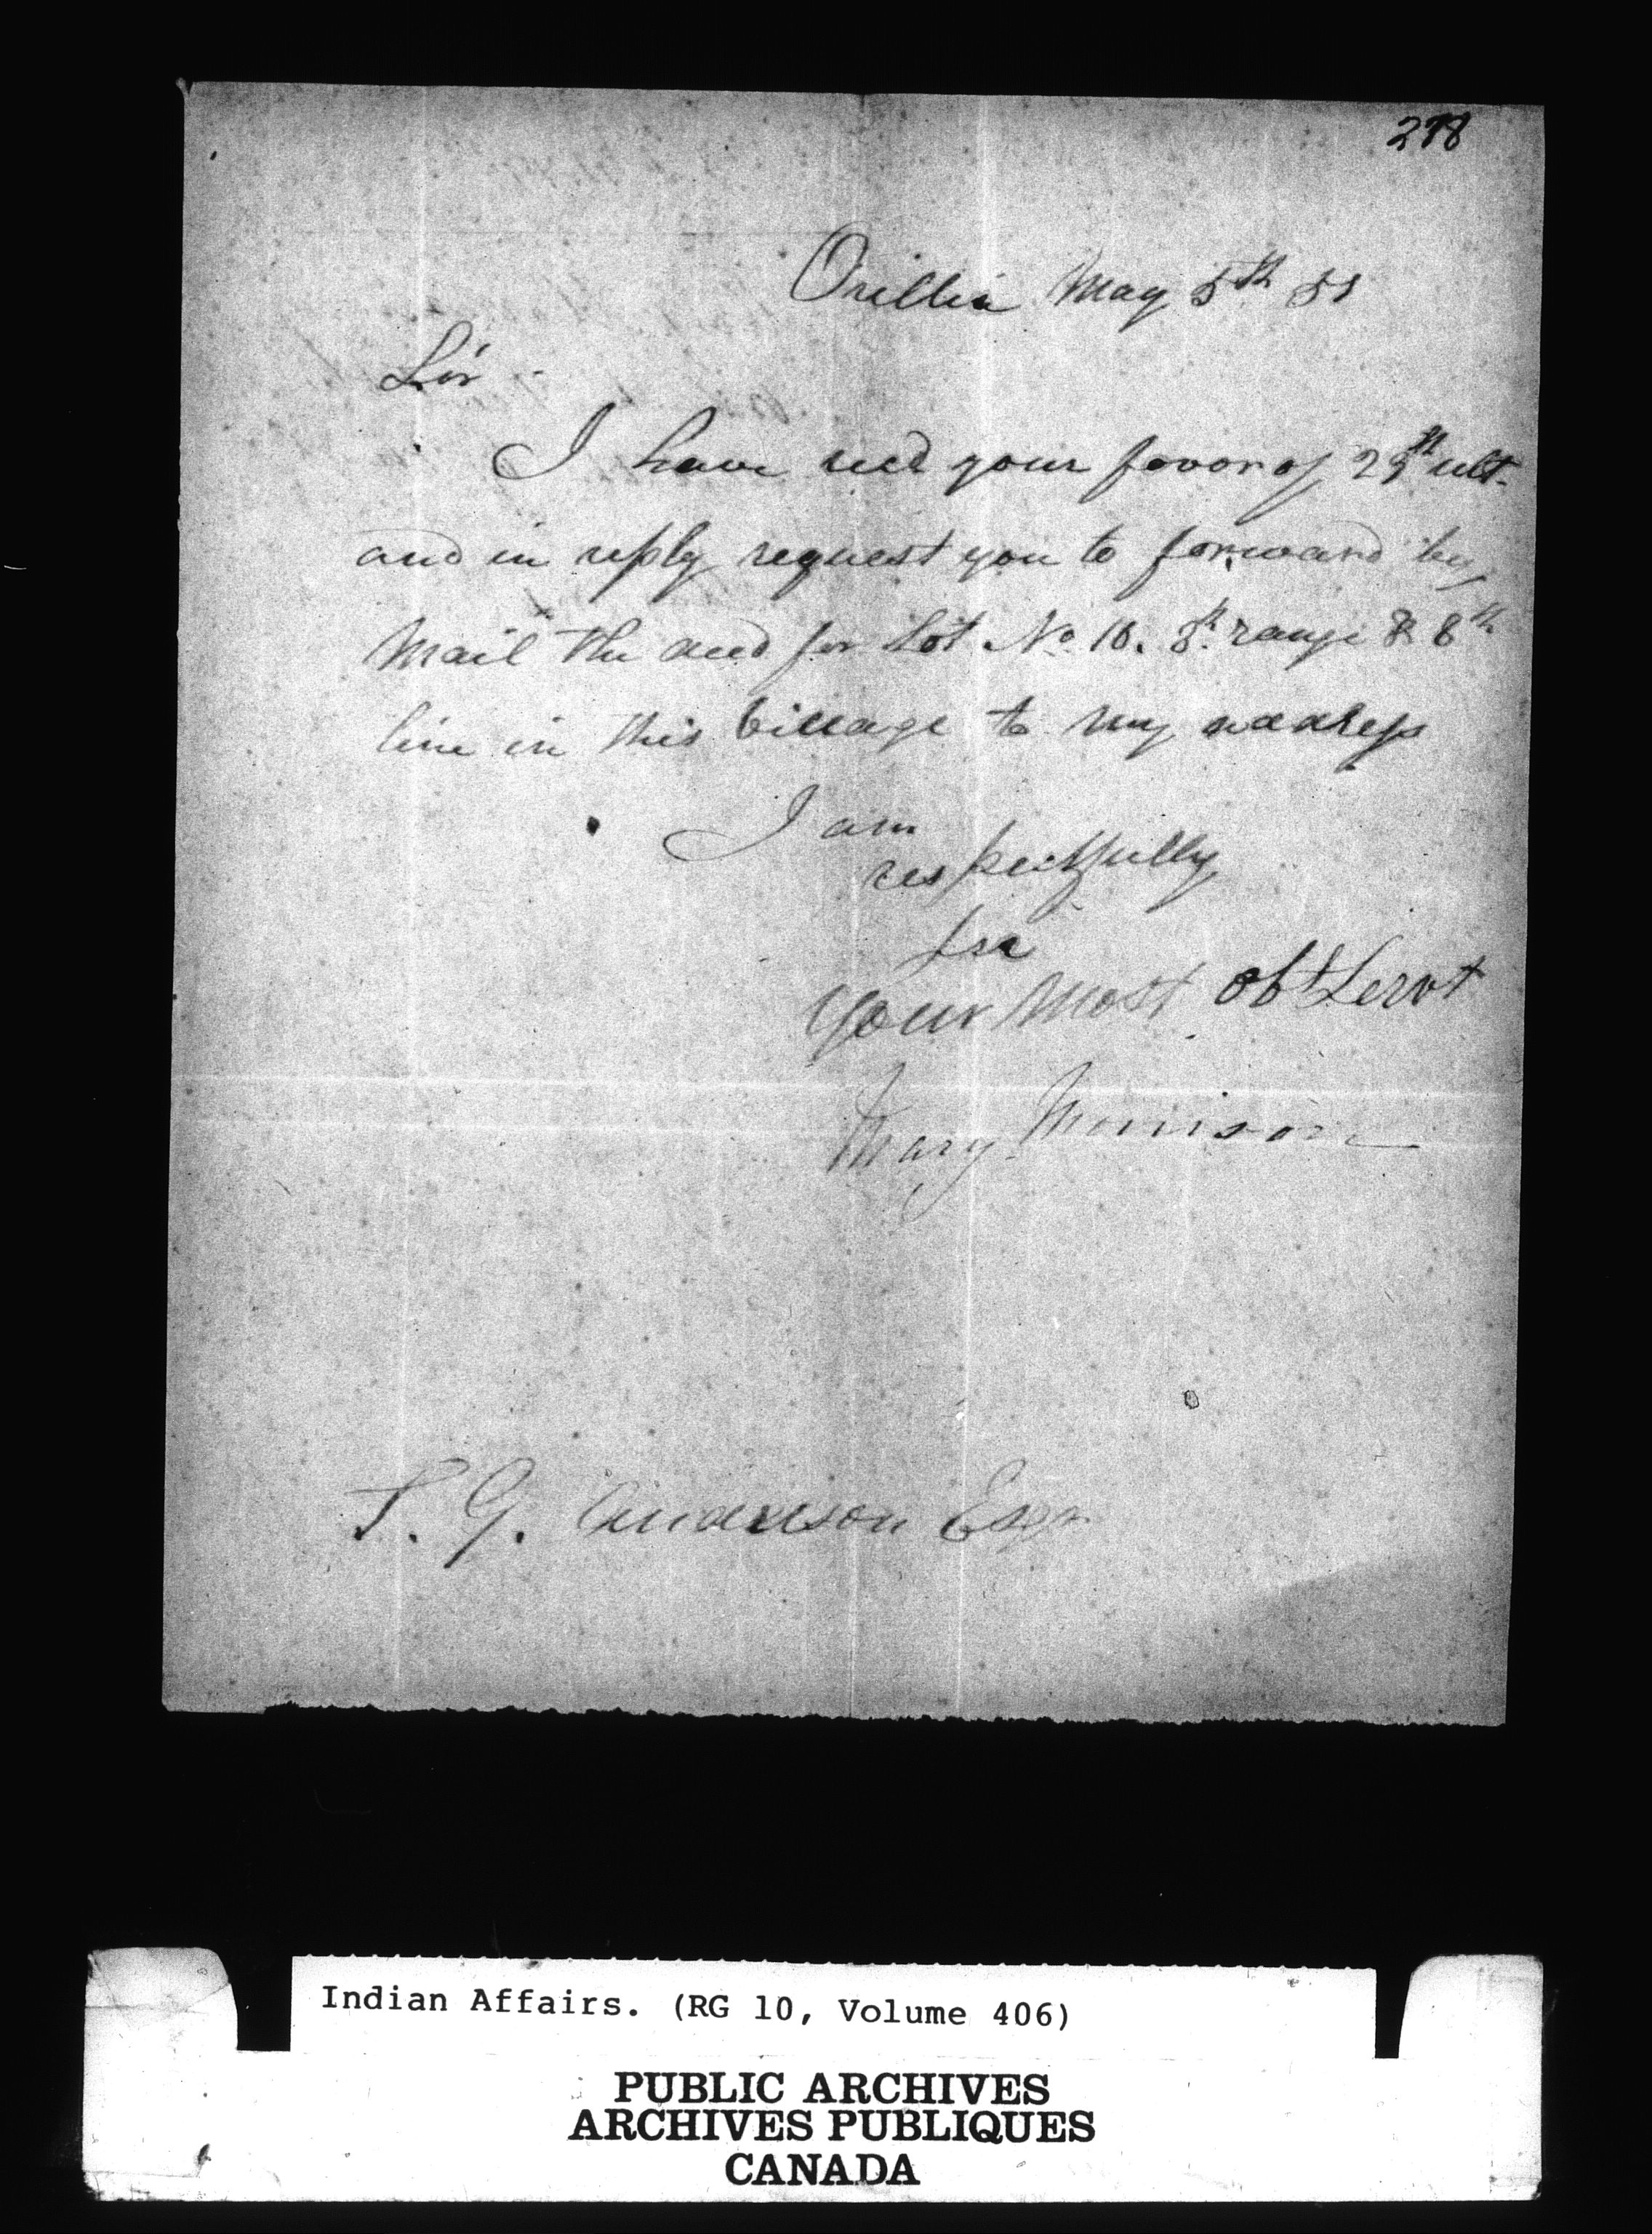 278
Orillia May 5th 51
Sir
I have recd your favor of 29th ult.
and in reply request you to forward by
Mail the deed for Lot No 10. 8th range & 8th
line in this Village to my address
I am
respectfully
Sir
Your Most Obt Servt
Mary Morrison
T. G. Anderson Esqr
Indian Affairs. (RG 10, Volume 406)
PUBLIC ARCHIVES
ARCHIVES PUBLIQUES
CANADA